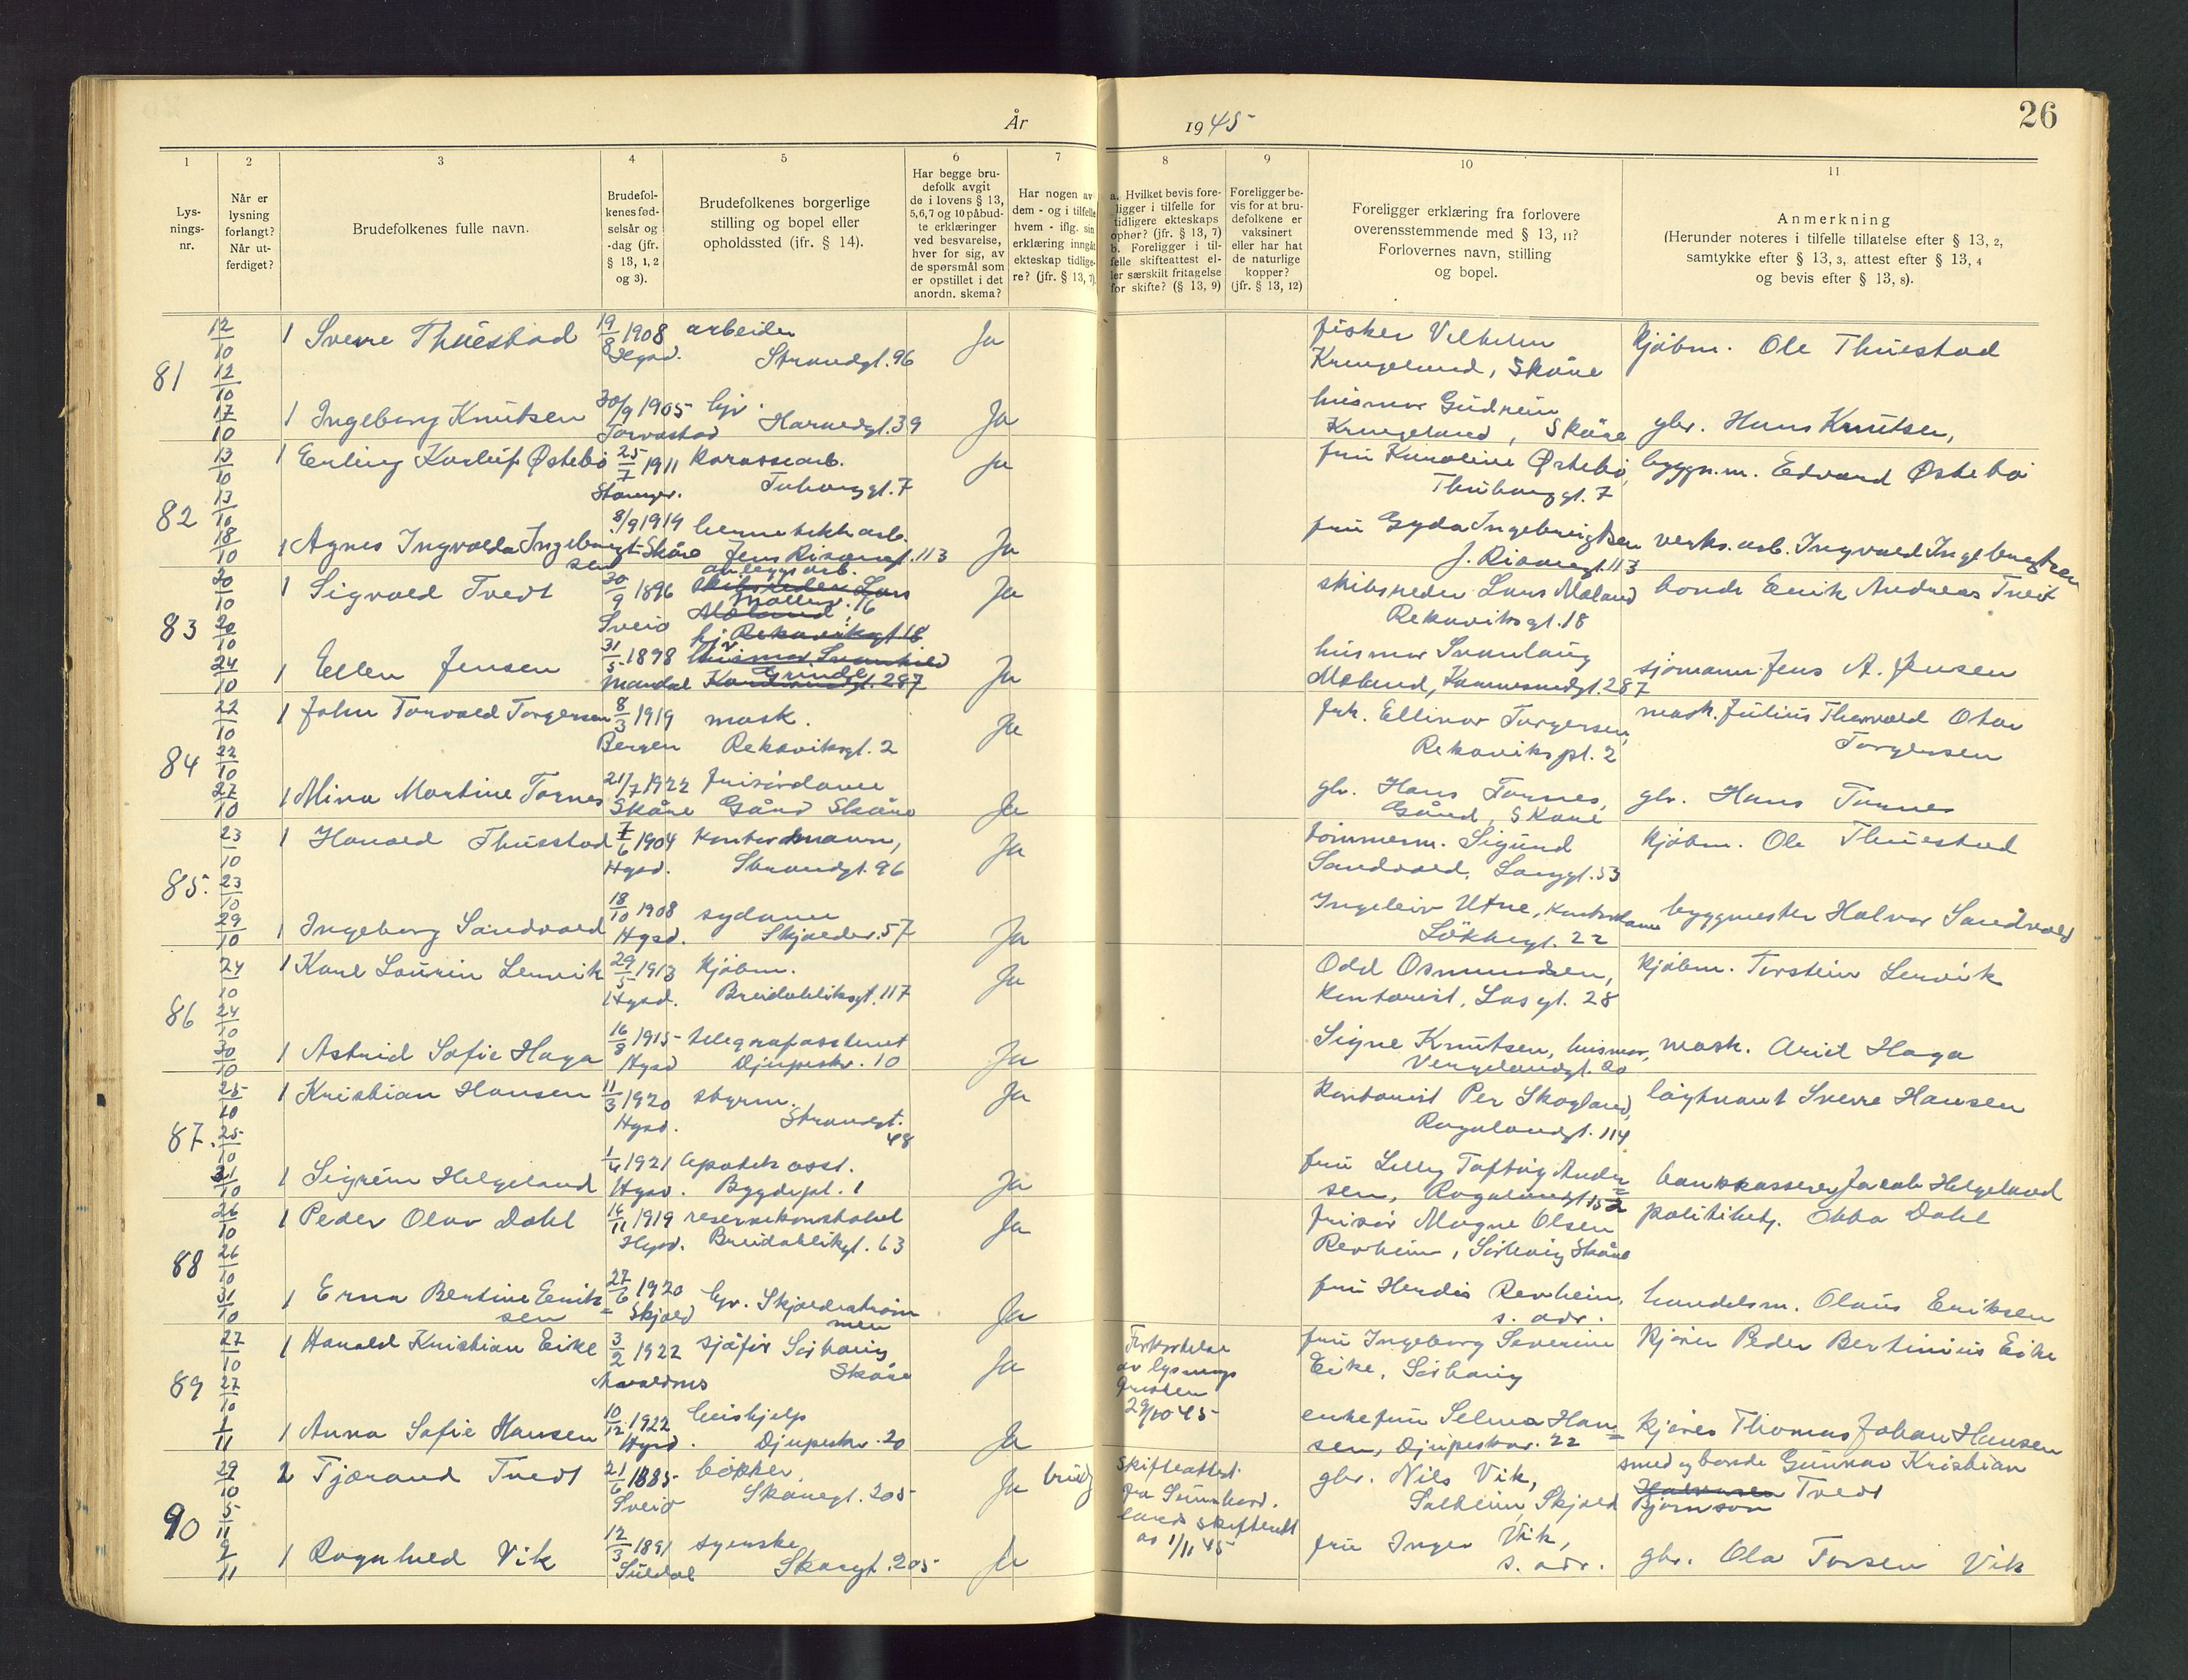 26
År
1945
1
2
3
4
5
6
7
8
9
10
11
Lys-
nings-
nr.
Når er
lysning
forlangt?
Når ut-
ferdiget?
Brudefolkenes fulle navn.
Brudefol-
kenes fød-
selsår og
-dag (jfr.
§ 13, 1, 2
og 3).
Brudefolkenes borgerlige
stilling og bopel eller
opholdssted (ifr. § 14).
Har begge bru-
defolk avgit
de i lovens § 13,
5,6,7 og 10 påbud-
te erklæringer
ved besvarelse,
hver for sig, av
de spørsmål som
er opstillet i det
anordn. skema?
Har nogen av
dem - og i tilfelle
hvem - iflg. sin
erklæring inngåt
ekteskap tidlige-
re? (jfr. § 13, 7)
a. Hvilket bevis fore-
ligger i tilfelle for
tidligere ekteskaps
ophør? (jfr. § 13, 7)
b. Foreligger i til-
felle skifteattest el-
ler særskilt fritagelse
for skifte? (§ 13, 9)
Foreligger be-
vis for at bru-
defolkene er
vaksinert
eller har hat
de naturlige
kopper?
(jfr. § 13, 12)
Foreligger erklæring fra forlovere
overensstemmende med § 13, 11?
Forlovernes navn, stilling
og bopel.
Anmerkning
(Herunder noteres i tilfelle tillatelse efter § 13, 2,
samtykke efter § 13, 3, attest efter § 13, 4
og bevis efter § 13, 8).
81
12/10
12/10
17/10
1 Sverre Thuestad
19/8 1908
Hgsd.
arbeider
Strandgt. 96
Ja
fisker Vilhelm
Kringeland, Skåre
Kjøbm. Ole Thuestad
1 Ingeborg Knutsen
30/9 1905
Torvastad
hjv.
Haraldgt. 39
Ja
husmor Gudrun
Kringeland, Skåre
gbr. Hans Knutsen,
82
13/10
13/10
18/10
1 Erling Karluf Østebø
25/7 1911
Stavngr.
karosseriarb.
Tuhauggt. 7
Ja
fru Karoline Østebø,
Thuhauggt. 7
byggn.m. Edvard Østebø
1 Agnes Ingvalda Ingebrigt-
sen
8/9 1914
Skåre
hermetikkarb.
Jens Risøensgt. 113
Ja
fru Gyda Ingebrigtsen
J. Risøengt. 113
verks.arb. Ingvald Ingebrigtsen
83
20/10
20/10
24/10
1 Sigvald Tvedt
30/9 1896
Sveio
anleggsarb.
skibsreder Lars
Møllerv. 16
Møland
Rekaviksgt 18
Ja
skibsreder Lars Møland
Rekaviksgt. 18
bonde Erik Andreas Tveit
1 Ellen Jensen
31/5 1898
Mandal
hjv
husmor Svanhild
Grinde
Karmsundgt. 287
Ja
husmor Svanlaug
Møland, Karmsundgt. 287
sjømann Jens A. Jensen
84
22/10
22/10
27/10
1 John Torvald Torgersen
8/3 1919
Bergen
mask.
Rekaviksgt. 2
Ja
frk. Ellinor Torgersen,
Rekavikspl. 2
mask. Julius Thorvald Otar
Torgersen
1 Mina Martine Tornes
21/7 1922
Skåre
frisørdame
Gård Skåre
Ja
gbr. Hans Tornes,
Gård, Skåre
gbr. Hans Tornes
85.
23/10
23/10
29/10
1 Harald Thuestad
7/6 1904
Hgsd.
kontormann,
Strandgt. 96
Ja
tømmerm. Sigurd
Sandvold, Langgt. 53
Kjøbm. Ole Thuestad
1 Ingeborg Sandvold
18/10 1908
Hgsd.
sydame
Skjoldev. 57
Ja
Ingeleiv Utne, kontordame
Løkkegt. 22
byggmester Halvor Sandvold
86
24/10
24/10
30/10
1 Karl Laurin Lervik
29/5 1913
Hgsd.
kjøbm.
Breidabliksgt. 117
Ja
Odd Osmundsen,
kontorist, Lasgt. 28
Kjøbm. Torstein Lervik
1 Astrid Sofie Haga
16/8 1915
Hgsd
telegrafassistent
Djupeskr. 10
Ja
Signe Knutsen, husmor,
Vergelandgt. 20
mask. Ariel Haga
87.
25/10
25/10
31/10
1 Kristian Hansen
11/3 1920
Hgsd.
styrm.
Strandgt.
48
Ja
kontorist Per Skogland,
Rogalandgt. 114
løytnant Sverre Hansen
1 Sigrun Helgeland
1/4 1921
Hgsd.
apotek asst.
Bygdepl. 1
Ja
fru Lilly Taftøy Ander-
sen, Rogalandgt. 152
bankkasserer Jacob Helgeland
88
26/10
26/10
31/10
1 Peder Olav Dahl
14/11 1919
Hgsd.
reservekonstabel
Breidablikgt. 63
Ja
frisør Magne Olsen
Revheim, Sørhaug Skåre
politibetj. Ebba Dahl
1 Erna Bertine Erik-
sen
27/6 1920
Skjold
hjv. Skjoldastraum
men
Ja
fru Herdis Revheim,
s. adr.
handelsm. Olaus Eriksen
89
27/10
27/10
1/11
1 Harald Kristian Eike
3/2 1922
Avaldsnes
sjåfør Sørhaug
Skåre
Ja
Forkortelse
av lysnings
fristen
29/10 45
fru Ingeborg Severine
Eike, Sørhaug
Kjører Peder Bertinius Eike
1 Anna Sofie Hansen
10/12 1922
Hgsd.
hushjelp
Djupeskr. 20
Ja
enkefru Selma Han-
sen, Djupeskar. 22
Kjøres Thomas Johan Hansen
90
29/10
5/11
9/11
2 Tjærand Tvedt
21/6 1885
Sveio
bøkker,
Skåregt. 205
Ja
Skifteattest
fra Sunnhord.
lands skifterett
av 1/11 45
gbr. Nils Vik,
Solheim, Skjold
smed og bonde Gunnar Kristian
Halvorsen Tvedt
Bjørnson
1 Ragnhild Vik
12/3 1891
Suldal
syerske
Skåregt. 205
Ja
fru Inger Vik,
s. adr.
gbr. Ola Torsen Vik